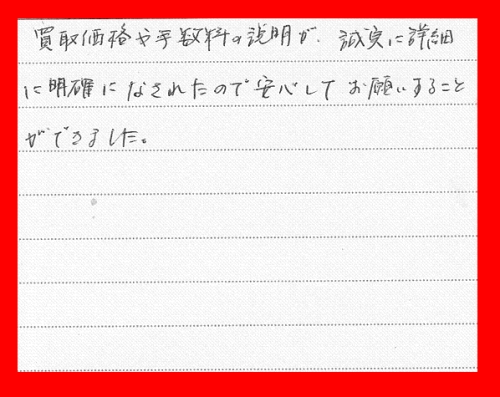 買取価格や手数料の説明が、誠実に詳細
に明確になされたので安心してお願いすること
ができました。